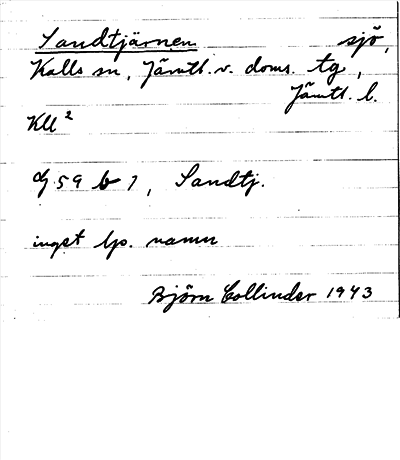 Sandtjärnen sjö,
Kalls sn, Jämtl. v. doms. tg,
Jämtl. l.
Kll²
59 b 7, Sandtj.
inget lp. namn
Björn Collinder 1943